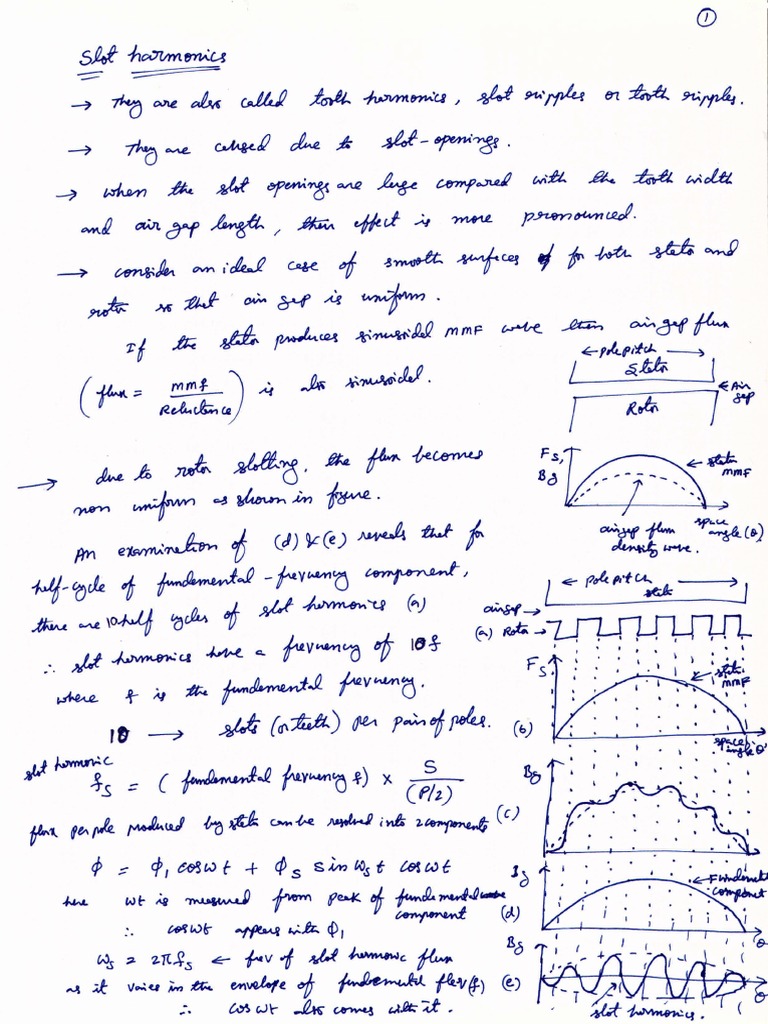 1
Slot harmonics
→ They are also called tooth harmonics, slot ripples or tooth ripples.
→ They are caused due to slot-openings.
→ when the slot openings are large compared with the tooth width
and air gap length, then effect is more pronounced.
→ consider an ideal case of smooth surfaces of for both stator and
rotor so that air gap is uniform.
If the stator produces sinusoidal MMF wave then air gap flux
(flux = mmf / Reluctance) is also sinusoidal.
← pole pitch →
Stator
← Air gap
Rotor
→ due to rotor slotting, the flux becomes
non uniform as shown in figure.
Fs,
Bg
← stator mmF
space angle (θ)
airgap flux density wave.
An examination of (d) & (e) reveals that for
half-cycle of fundamental-frequency component,
there are 10 half cycles of slot harmonics
∴ slot harmonics have a frequency of 10f
where f is the fundamental frequency.
10 → slots (or teeth) per pair of poles.
← pole pitch →
stator
airgap →
(a) Rotor →
(a)
Fs
← stator mmF
(b)
space angle θ
slot harmonic
fs = (fundamental frequency f) × S / (P/2)
flux per pole produced by stator can be resolved into 2 components
Bg
(c)
φ = φ1 cos wt + φs sin ws t cos wt
here wt is measured from peak of fundamental
component
∴ cos wt appears with φ1
Bg
← Fundamental component
(d)
θ
ws = 2πfs ← freq of slot harmonic flux
as it varies in the envelope of fundamental flux (f)
∴ cos wt also comes with it.
Bg
(e)
θ
slot harmonics.